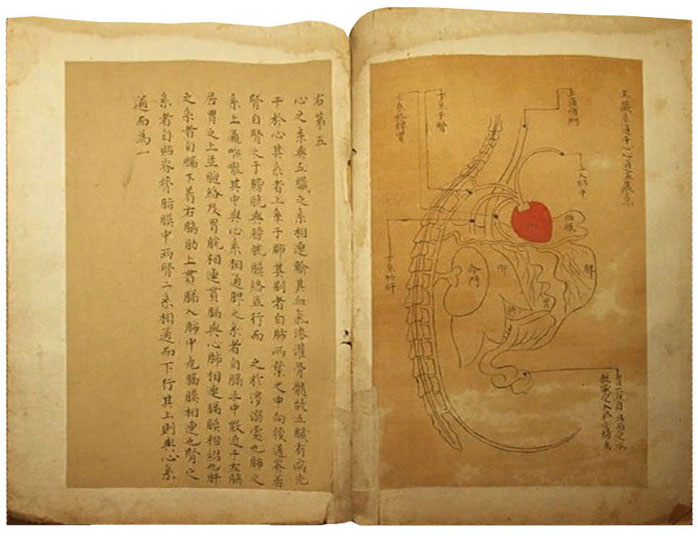 五臟系通于心心通五臟系
命門
肝
脾
右第五
心之系與五臟之系相連輸其血氣滲灌骨髓故五臟有病先
干於心其系者上系于肺其別者自肺兩葉之中向後通脊者
腎自腎之于膀胱與膀胱膜絡並行而 之於溲溺處也肺之
系上通喉嚨其中與心系相通脾之系者自膈正中微近于左脇
居胃之上並胞絡及胃脘相連貫膈與心肺相連膈膜相綴也肝
之系者自膈下著右脇肋上貫膈入肺中與膈膜相連也腎之
系者自貼脊膂脂膜中兩腎二系相通而下行其上則與心系
通而為一